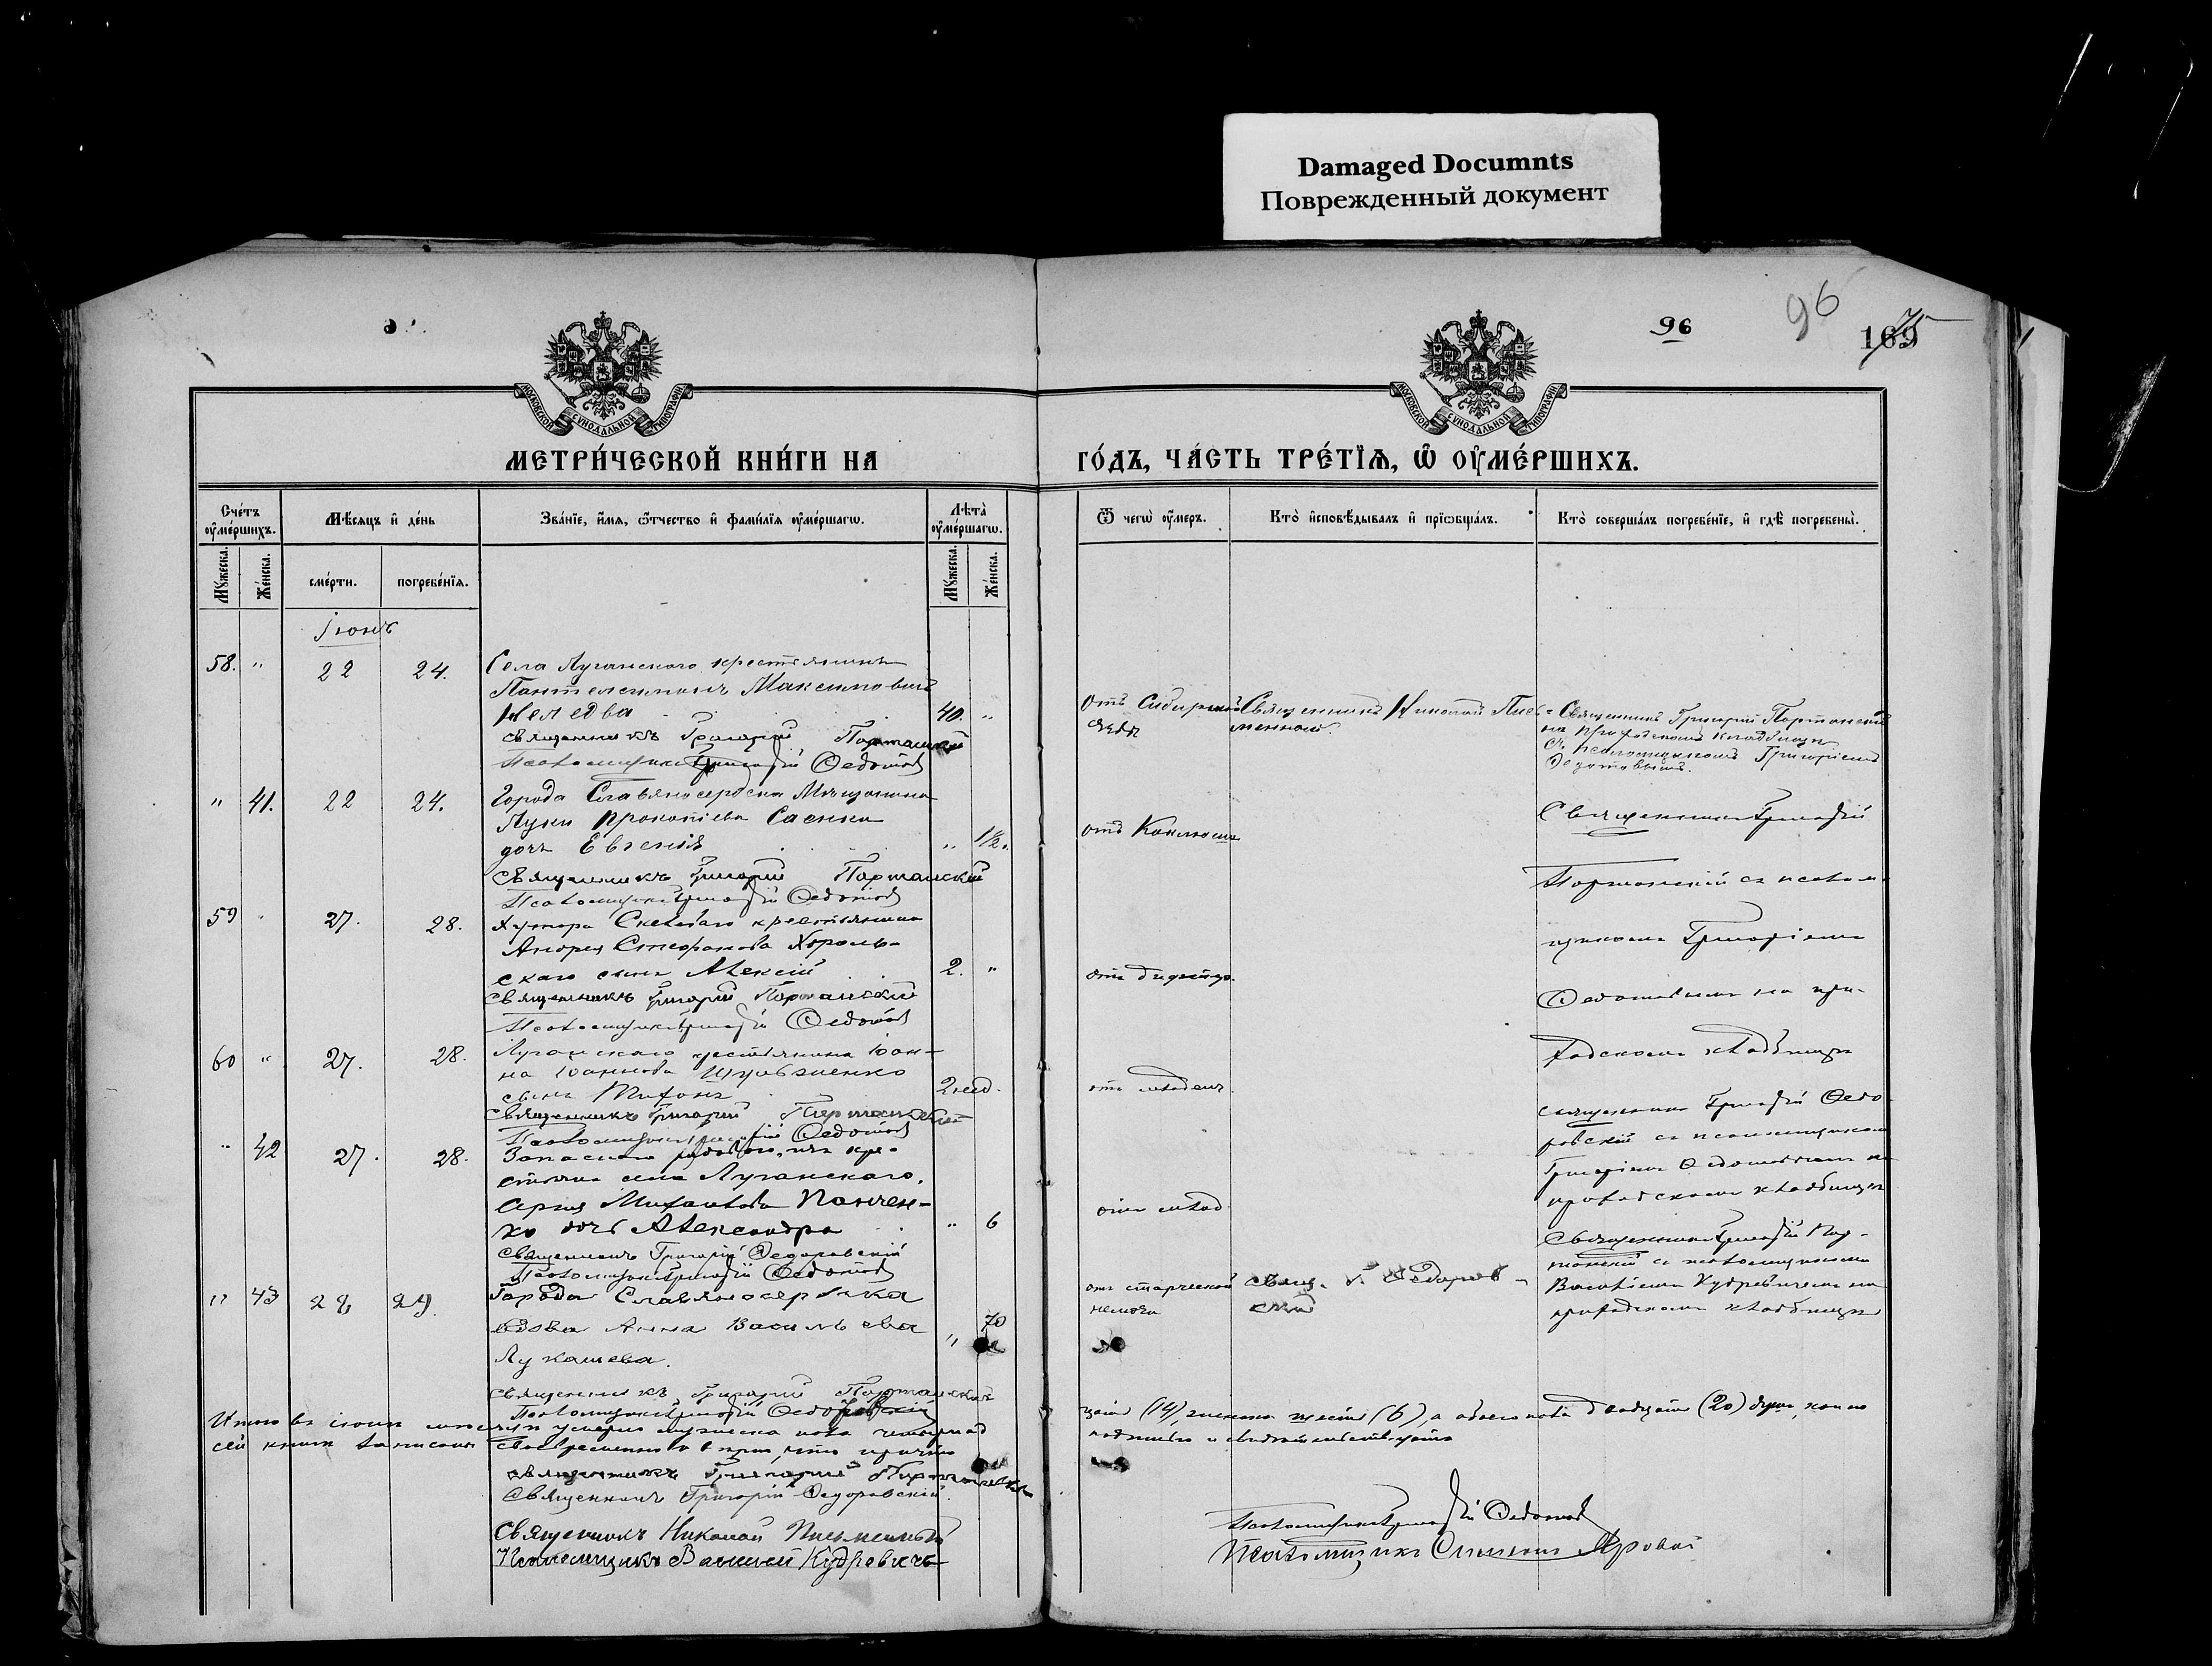 Damaged Documnts
Поврежденный документ
96
96
169
75
МОСКОВСКОЙ СѴНОДАЛЬНОЙ ТИПОГРАФІИ
МОСКОВСКОЙ СѴНОДАЛЬНОЙ ТИПОГРАФІИ
МЕТРИ́ЧЕСКОЙ КНИ́ГИ НА
ГО́ДЪ, ЧА́СТЬ ТРЕ́ТЇѦ, Ѿ ОУ҆МЕ́РШИХЪ.
Сче́тъ оу҆ме́ршихъ.
Мѣ́сяцъ и҆ де́нь
Зва́нїе, и҆́мя, ѻ҆́тчество и҆ фами́лїя оу҆ме́ршагѡ.
Лѣ́та оу҆ме́ршагѡ.
Ѿ чегѡ̀ оу҆́меръ.
Кто̀ и҆сповѣ́дывалъ и҆ прїѡбща́лъ.
Кто̀ соверша́лъ погребе́нїе, и҆ гдѣ̀ погребены̀.
Мꙋ́жеска.
Же́нска.
сме́рти.
погребе́нїя.
Мꙋ́жеска.
Же́нска.
Іюнь
58. " 22 24. Села Луганскаго крестьянинъ
Пантелеимонъ Максимовичъ
40. "
Священникъ Григорій Портанскій
Псаломщикъ Григорій Федотов
Отъ Сибирской язвы
Священникъ Николай Письменной.
Священникъ Григорій Портанскій
на приходскомъ кладбищѣ
съ псаломщикомъ Григоріемъ
Федотовымъ.
" 41. 22 24. Города Славяносербска Мѣщанина
Луки Прокопіева Саенка
дочь Евгенія " 1½.
Священникъ Григорій Портанскій
Псаломщикъ Григорій Федотов
отъ Коклюша
Священникъ Григорій
Портанскій съ псалом-
щикомъ Григоріемъ
Федотовымъ на при-
ходскомъ кладбищѣ
59 27. 28. Хутора крестьянина
Андрея Стефанова Хороль-
скаго сынъ Алексій 2. "
Священникъ Григорій Портанскій
Псаломщикъ Григорій Федотов
60 " 27. 28. Луганскаго крестьянина Іоан-
на Іоаннова
сынъ Тихонъ 2 нед.
Священникъ Григорій Портанскій
Псаломщикъ Григорій Федотов
отъ младенч.
священникъ Григорій Федо-
ровскій съ псаломщикомъ
Григоріемъ Федотовымъ на
приходскомъ кладбищѣ
" 42 27. 28. Запаснаго рядового, изъ кре-
стьянъ села Луганскаго,
Михайлова Панчен-
ко дочь Александра " 6
Священникъ Григорій Федоровскій
Псаломщикъ Григорій Федотов
отъ млад.
Священникъ Григорій Пор-
танскій съ псаломщикомъ
Василіемъ Кудревичемъ на
приходскомъ кладбищѣ
" 43 28 29. Города Славяносербска
вдова Анна Васильева
Лукашева. " 70
Священникъ Григорій Портанскій
Псаломщикъ Григорій
отъ старческой немочи
свящ. Г. Федоров-
скій
Итого въ іюнѣ мѣсяцѣ умерло мужеска пола четырнад
цать (14), женска шесть (6), а обоего пола двадцать (20) душъ, кои по
сей книгѣ записаны своевременно
Священникъ Григорій Портанскій
Священникъ Григорій Федоровскій.
Священникъ Николай Письменный
Псаломщикъ Василій Кудревичъ
Псаломщикъ Григорій Федотов
Псаломщикъ Яровой